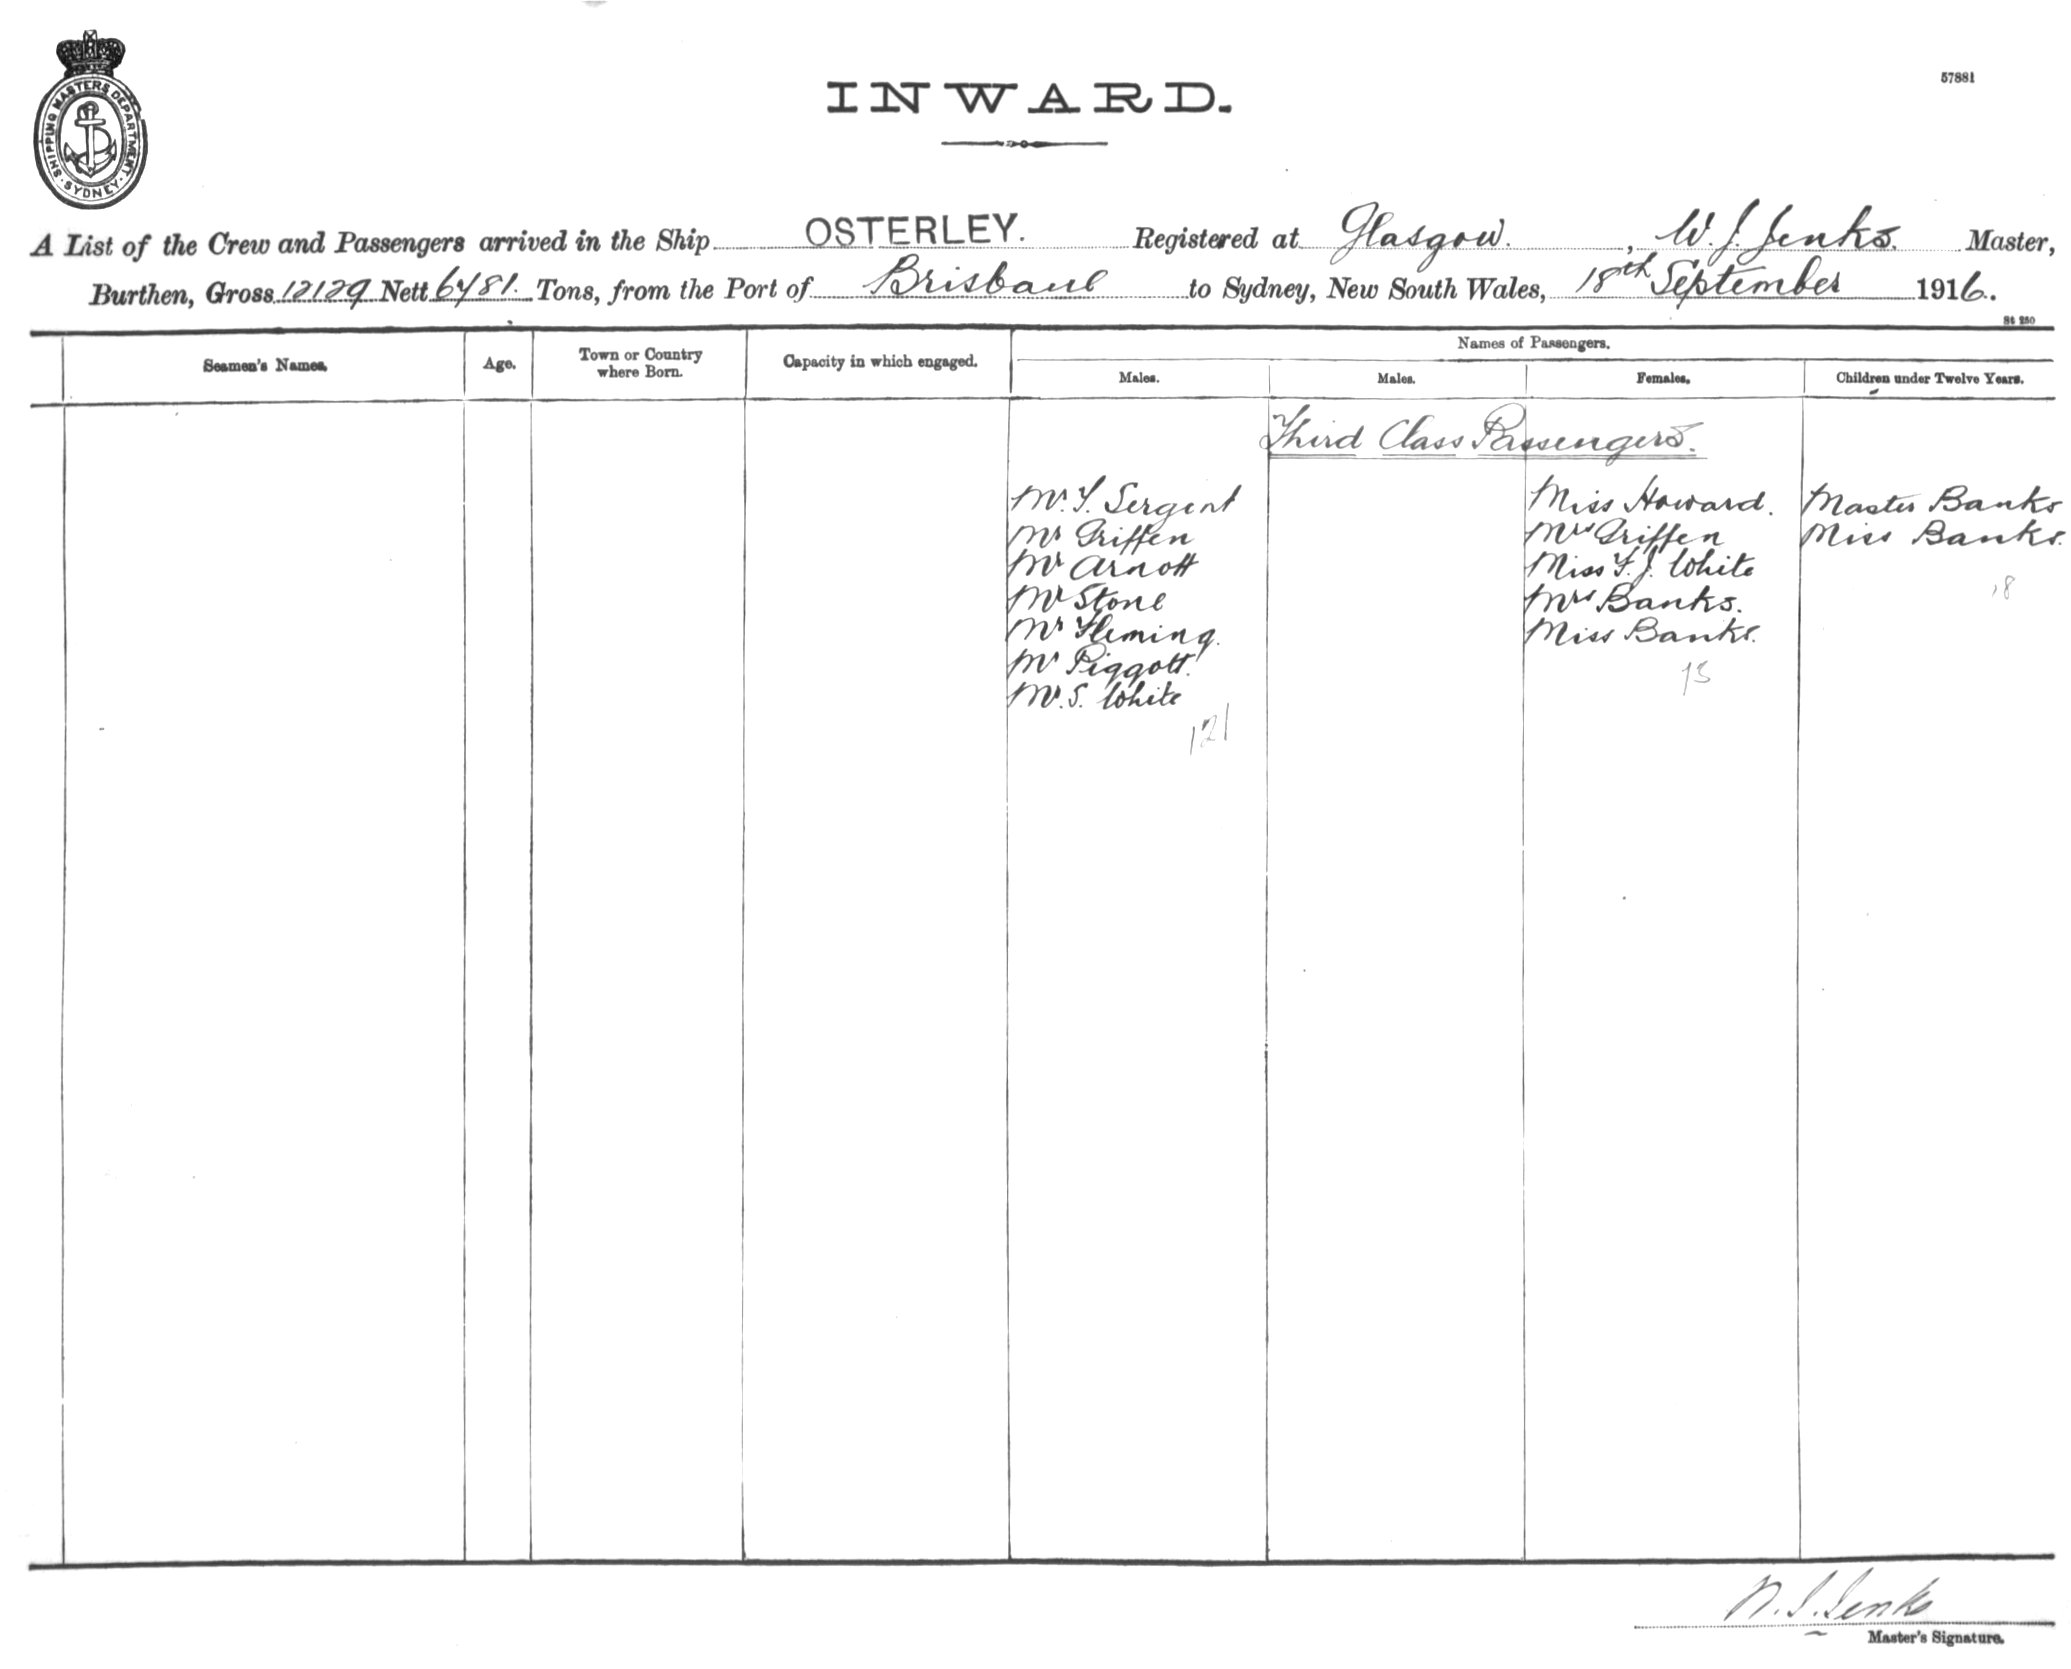 SHIPPING MASTERS DEPARTMENT. SYDNEY.
57881
INWARD.
A List of the Crew and Passengers arrived in the Ship OSTERLEY. Registered at Glasgow. , W. J. Jenks. Master,
Burthen, Gross 12129 Nett 6781. Tons, from the Port of Brisbane to Sydney, New South Wales, 18th September 1916.
St 250
Seamen's Names. Age. Town or Country where Born. Capacity in which engaged. Names of Passengers.
Males. Males. Females. Children under Twelve Years.
Third Class Passengers.
Mr. T. Sergent Miss Howard. Master Banks
Mr Griffen Mrs Griffen Miss Banks.
Mr Arnott Miss F. J. White
Mr Stone Mrs Banks. 18
Mr Fleming. Miss Banks.
Mr Piggott.
Mr. S. White
121
Jenks
Master's Signature.